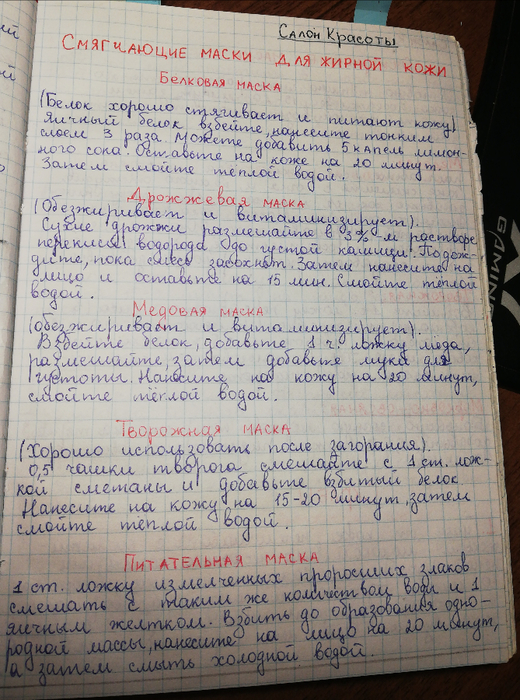 Салон Красоты
Смягчающие маски для жирной кожи
Белковая маска
(Белок хорошо стягивает и питают кожу)
Яичный белок взбейте, нанесите тонким
слоем 3 раза. Можете добавить 5 капель лимон-
ного сока. Оставьте на коже на 20 минут.
Затем смойте тёплой водой.
Дрожжевая маска
(Обезжиривает и витаминизирует).
Сухие дрожжи размешайте в 3%-м растворе
перекиси водорода до густой кашицы. Подож-
дите, пока смесь засохнет. Затем нанесите на
лицо и оставьте на 15 мин. Смойте тёплой
водой.
Медовая маска
(обезжиривает и витаминизирует).
Взбейте белок, добавьте 1 ч. ложку мёда,
размешайте, затем добавьте муки для
густоты. Нанесите на кожу на 20 минут,
смойте тёплой водой.
Творожная маска
(Хорошо использовать после загорания).
0,5 чашки творога смешайте с 1 ст. лож-
кой сметаны и добавьте взбитый белок
Нанесите на кожу на 15-20 минут, затем
смойте тёплой водой.
Питательная маска
1 ст. ложку измельченных проросших злаков
смешать с таким же количеством воды и 1
яичным желтком. Взбить до образования одно-
родной массы, нанесите на лицо на 20 минут,
а затем смыть холодной водой.
GAMING